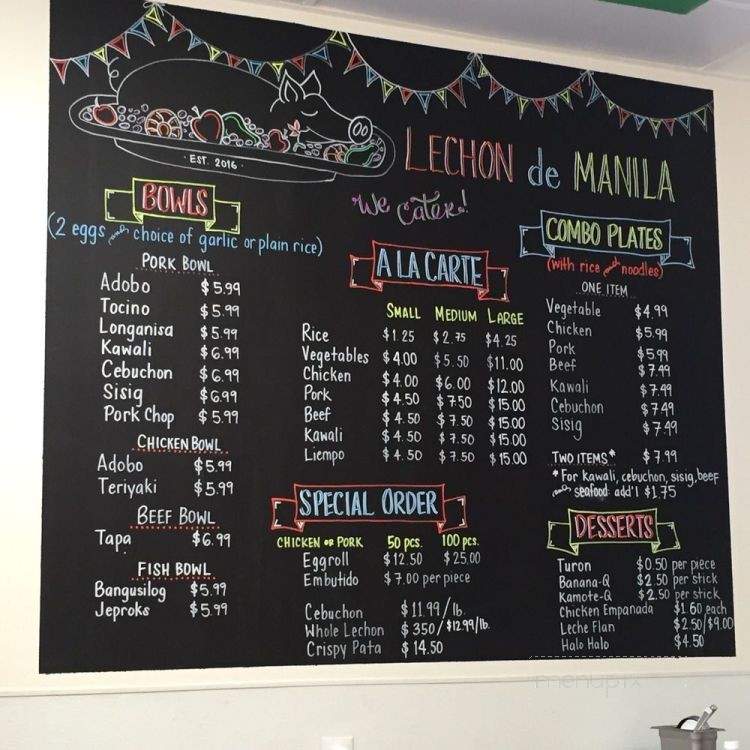 EST. 2016
LECHON de MANILA
We Cater!
BOWLS
(2 eggs and choice of garlic or plain rice)
PORK BOWL
Adobo $5.99
Tocino $5.99
Longanisa $5.99
Kawali $6.99
Cebuchon $6.99
Sisig $6.99
Pork Chop $5.99
CHICKEN BOWL
Adobo $5.99
Teriyaki $5.99
BEEF BOWL
Tapa $6.99
FISH BOWL
Bangusilog $5.99
Jeproks $5.99
A LA CARTE
SMALL MEDIUM LARGE
Rice $1.25 $2.75 $4.25
Vegetables $4.00 $5.50 $11.00
Chicken $4.00 $6.00 $12.00
Pork $4.50 $7.50 $15.00
Beef $4.50 $7.50 $15.00
Kawali $4.50 $7.50 $15.00
Liempo $4.50 $7.50 $15.00
SPECIAL ORDER
CHICKEN or PORK 50 pcs. 100 pcs.
Eggroll $12.50 $25.00
Embutido $7.00 per piece
Cebuchon $11.99/lb.
Whole Lechon $350/$12.99/lb.
Crispy Pata $14.50
COMBO PLATES
(with rice and noodles)
ONE ITEM
Vegetable $4.99
Chicken $5.99
Pork $5.99
Beef $7.49
Kawali $7.49
Cebuchon $7.49
Sisig $7.49
TWO ITEMS* $7.99
*For kawali, cebuchon, sisig, beef
and seafood: add'l $1.75
DESSERTS
Turon $0.50 per piece
Banana-Q $2.50 per stick
Kamote-Q $2.50 per stick
Chicken Empanada $1.60 each
Leche Flan $2.50/$9.00
Halo Halo $4.50
menupix